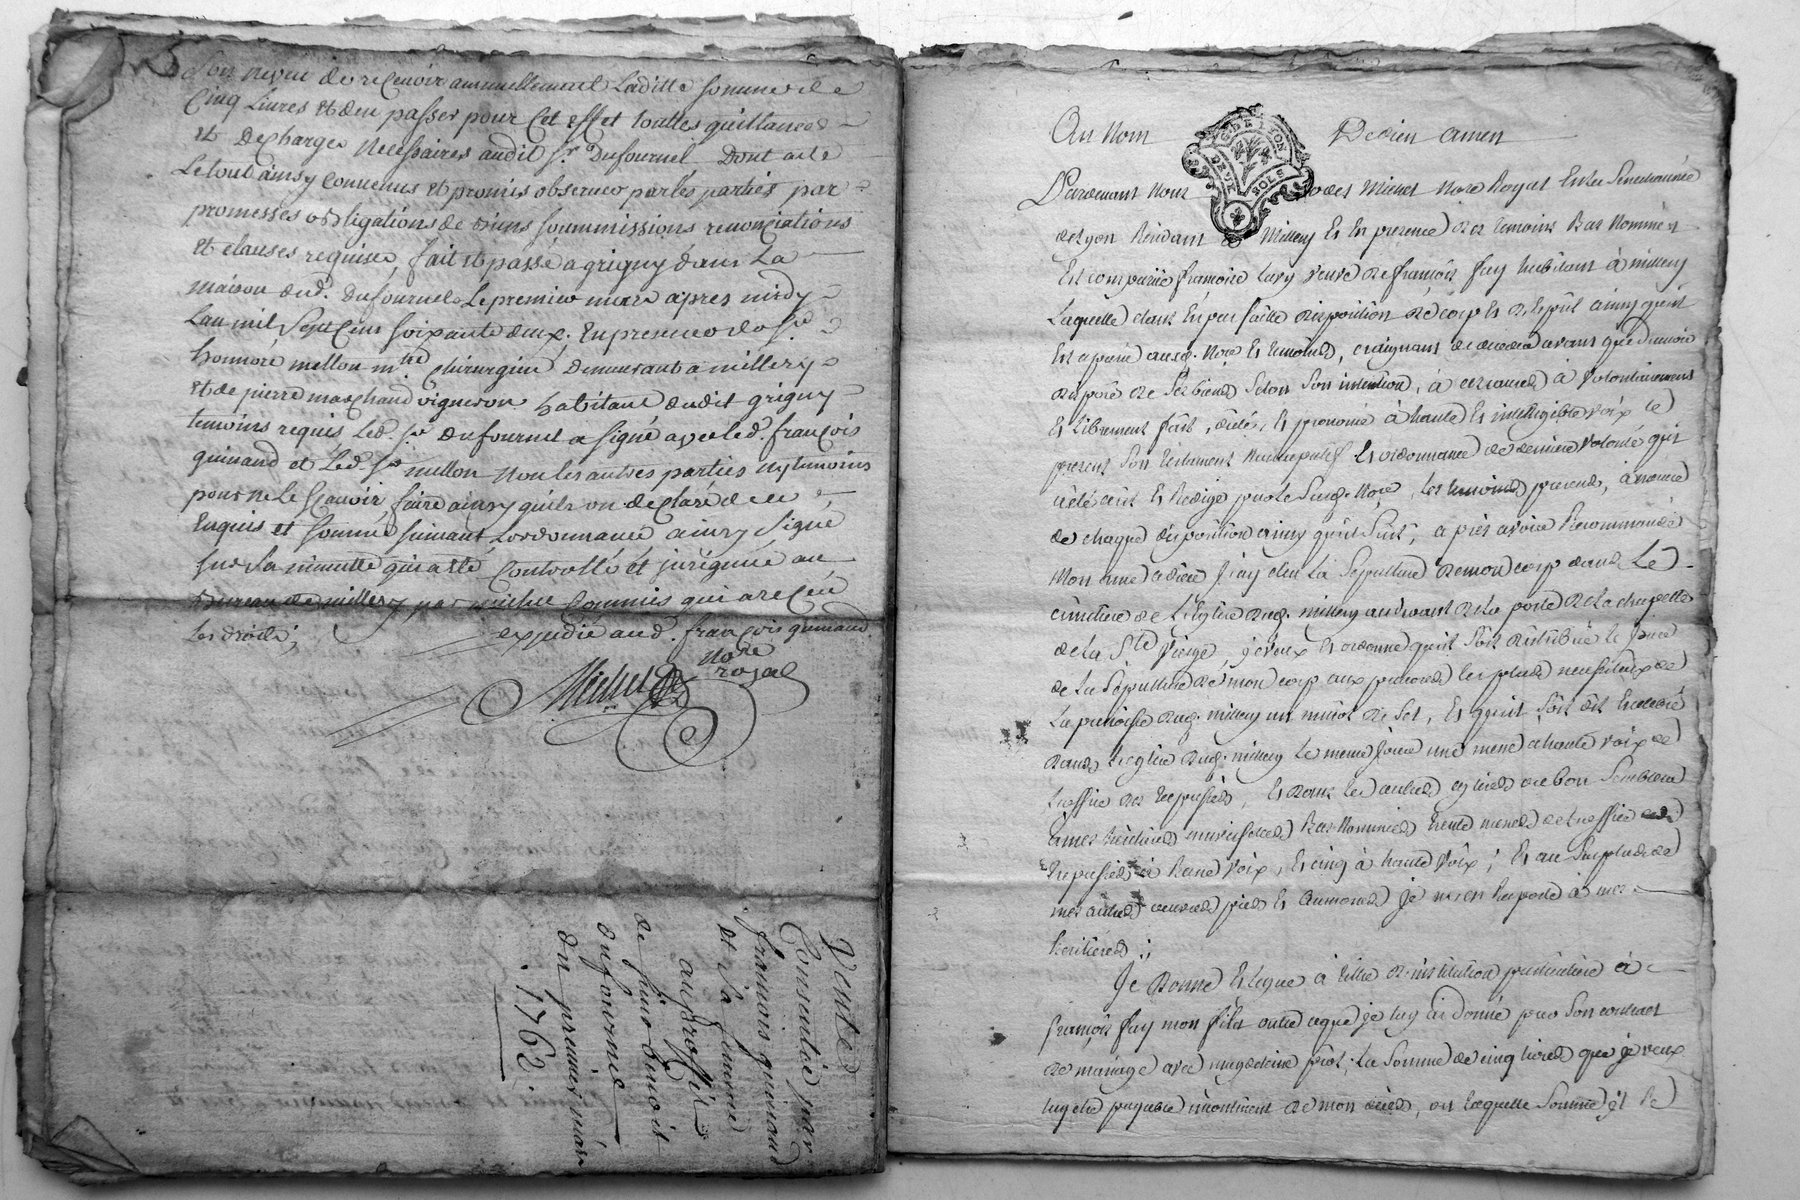 de recevoir annuellement Laditte somme de
Cinq Livres et den passer pour Cet effet touttes quittances
et Decharges Necessaires audit Sr. Dufournel Dont acte
Le tout ainsy Convenus et promis observer par les parties par
promesses obligations de biens soummissions renonciations
et clauses requises, fait et passé a grigny dans La
maison dud. Dufournel Le premier mars apres midy
Lan mil Sept Cens soixante deux. En presence de Sr.
honnoré mellon me. Chirurgien Demeurant a millery
et de pierre marchand vigneron habitant dudit grigny
temoins requis Led. Sr Dufournel a signé avec led. françois
guinand et Led. Sr mellon Non les autres parties ny temoins
pour ne Le sçavoir faire ainsy quils on declaré de ce
Enquis et sommé suivant Lordonnance ainsy signé
sur La minutte qui a eté Controllé et insinué au
Bureau de millery par michel Commis qui a receu
les droits;
expedié aud. françois guinand.
Michel Nore royal
Vente
Consentie par
françois guinand
et sa femme
au proffit
de sieur benoist
dufournel
du premier mars
1762.
Au Nom De Dieu amen
G DE LYON
DEUX SOLS
Pardevant Nous Michel Nore Royal En la Senechaussée
de Lyon Residant a Millery Et En presence des temoins Bas Nommés
Est comparüe françoise veuve de françois fay habitant à millery
Laquelle etant En parfaitte disposition de corps et desprit ainsy quil
Est aparu ausd. Nore Et temoins, craignant de deceder avant que davoir
disposé de ses biens selon son intention, à
Et Librement fait, dicté, Et prononcé à haute Et intelligible voix le
present son testament Nuncupatif Et ordonnance de derniere volonté quil
à été écrit Et Redigé par le susd. Nore, les temoins presents, à mesure
de chaque disposition ainsy quil suit, après avoir Recommandé
Mon ame a dieu J'ay elu La Sepulture de mon corps dans Le
cimetiere de L'eglise dud. millery au devant de la porte de La chapelle
de la Ste Vierge, je veux Et ordonne quil soit distribué le jour
de La Sepulture de mon corp aux pauvres les plus necessiteux de
La paroisse dud. millery un minot de Sel, Et quil soit dit
dans L'eglise dud. millery Le meme jour une messe a haute voix de
L'office des trepassés, Et dans les autres eglises ou bon Semblera
à mes heritiers Bas Nommés trente messes de L'office des
trepassés à Basse voix, Et cinq à haute voix; Et au Surplus de
mes autres œuvres pies Et aumones Je m'en Raporte à mes
heritiers;
Je Donne Et legue à titre D'institution particuliere à
françois fay mon fils outre ceque je luy ai donné par Son contract
de mariage avec magdeleine La Somme de cinq livres que je veux
luy etre payable incontinent de mon décès, en Laquelle Somme je le